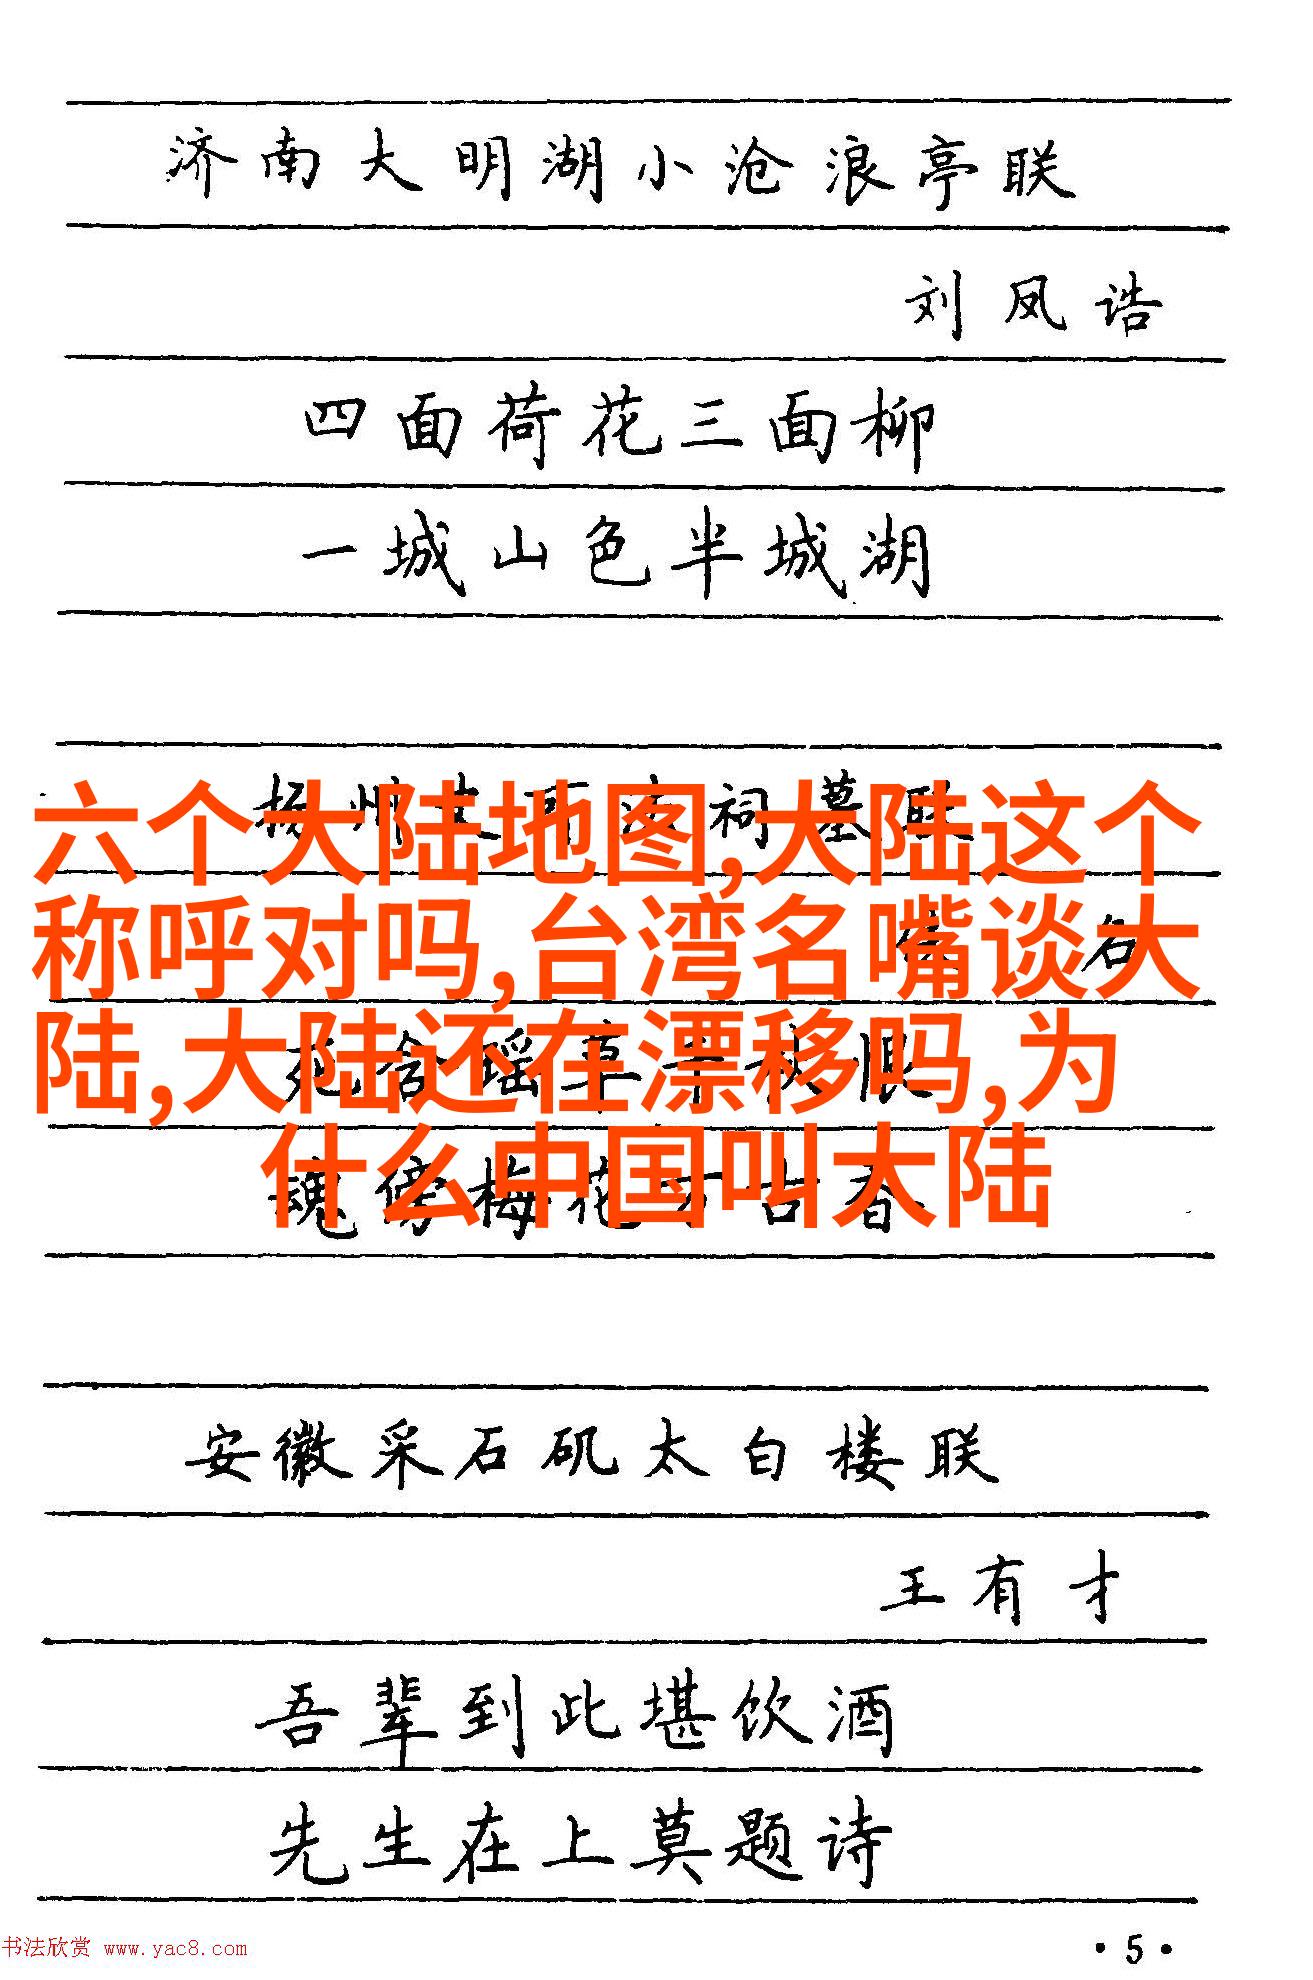 济南大明湖小沧浪亭联
刘凤诰
四面荷花三面柳
一城山色半城湖
祠墓联
六个大陆地图,大陆这个
石
称呼对吗,台湾名嘴谈大
陆,大陆还在漂移吗,为
魂傍梅花 古春
什么中国叫大陆
安徽采石矶太白楼联
王有才
吾辈到此堪饮酒
先生在上莫题诗
书法欣赏 www.yac8.com
·5·